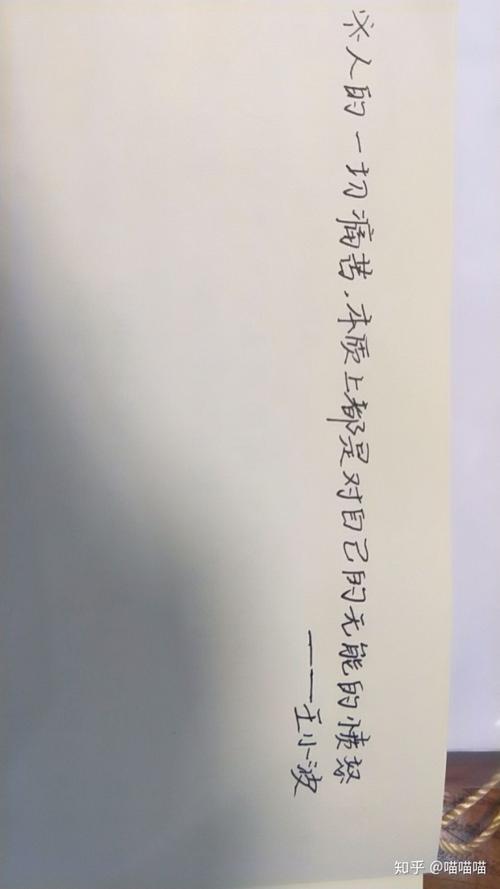 人的一切痛苦，本质上都是对自己的无能的愤怒
——王小波
知乎 @喵喵喵